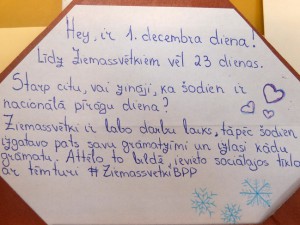 Hey, ir 1. decembra diena!
Līdz Ziemassvētkiem vēl 23 dienas.
Starp citu, vai zināji, ka šodien ir
nacionālā pīrāgu diena?
Ziemassvētki ir labo darbu laiks, tāpēc šodien
izgatavo pats savu grāmatzīmi un izlasi kādu
grāmatu. Attēlo to bildē, ievieto sociālajos tīklos
ar tēmturi #ZiemassvetkiBPP